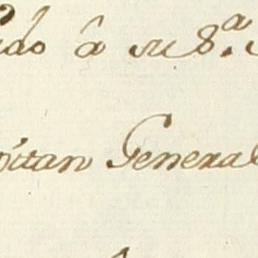 â su S.ª
pitan General